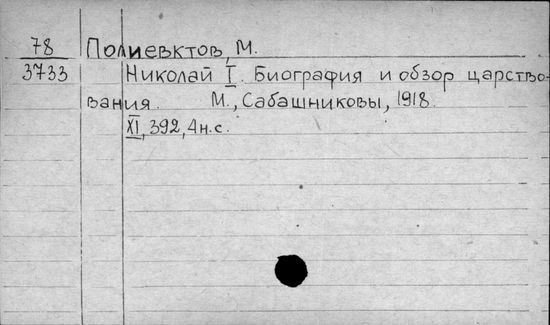 78 Полиевктов, М.
3733 Николай I. Биография и обзор царство-
вания. М., Сабашниковы, 1918.
XI, 392, 4 н.с.